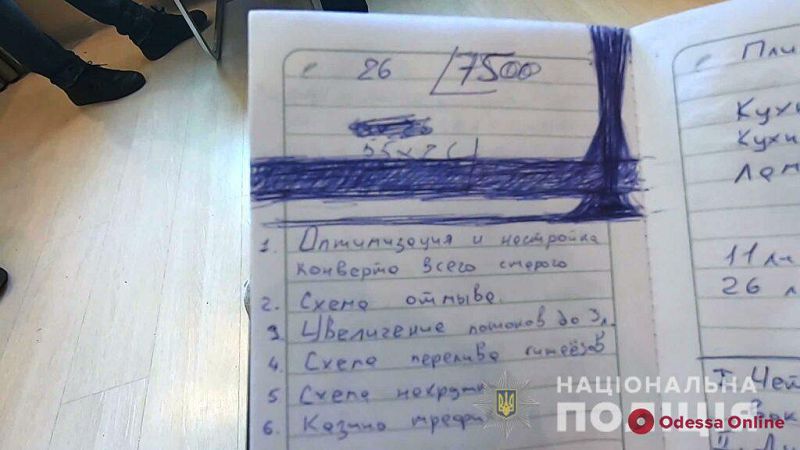 26 7500
55 x
1. Оптимизация и настройка
конверта всего старого
2. Схема отмыва.
3 Увеличение потоков до 3л.
4. Схема перелива
5 Схема накрутки
6. Казино
Кухн
Кухн
Лам
11 л
26 л
НАЦІОНАЛЬНА
ПОЛІЦІЯ
Odessa Online